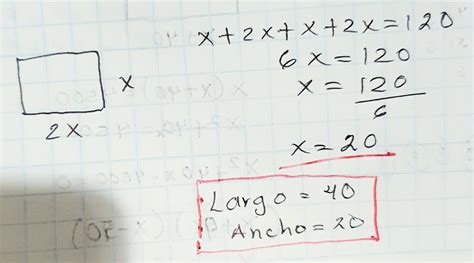 x+2x+x+2x=120
6x=120
x=120
6
x
2x
x=20
Largo=40
Ancho=20